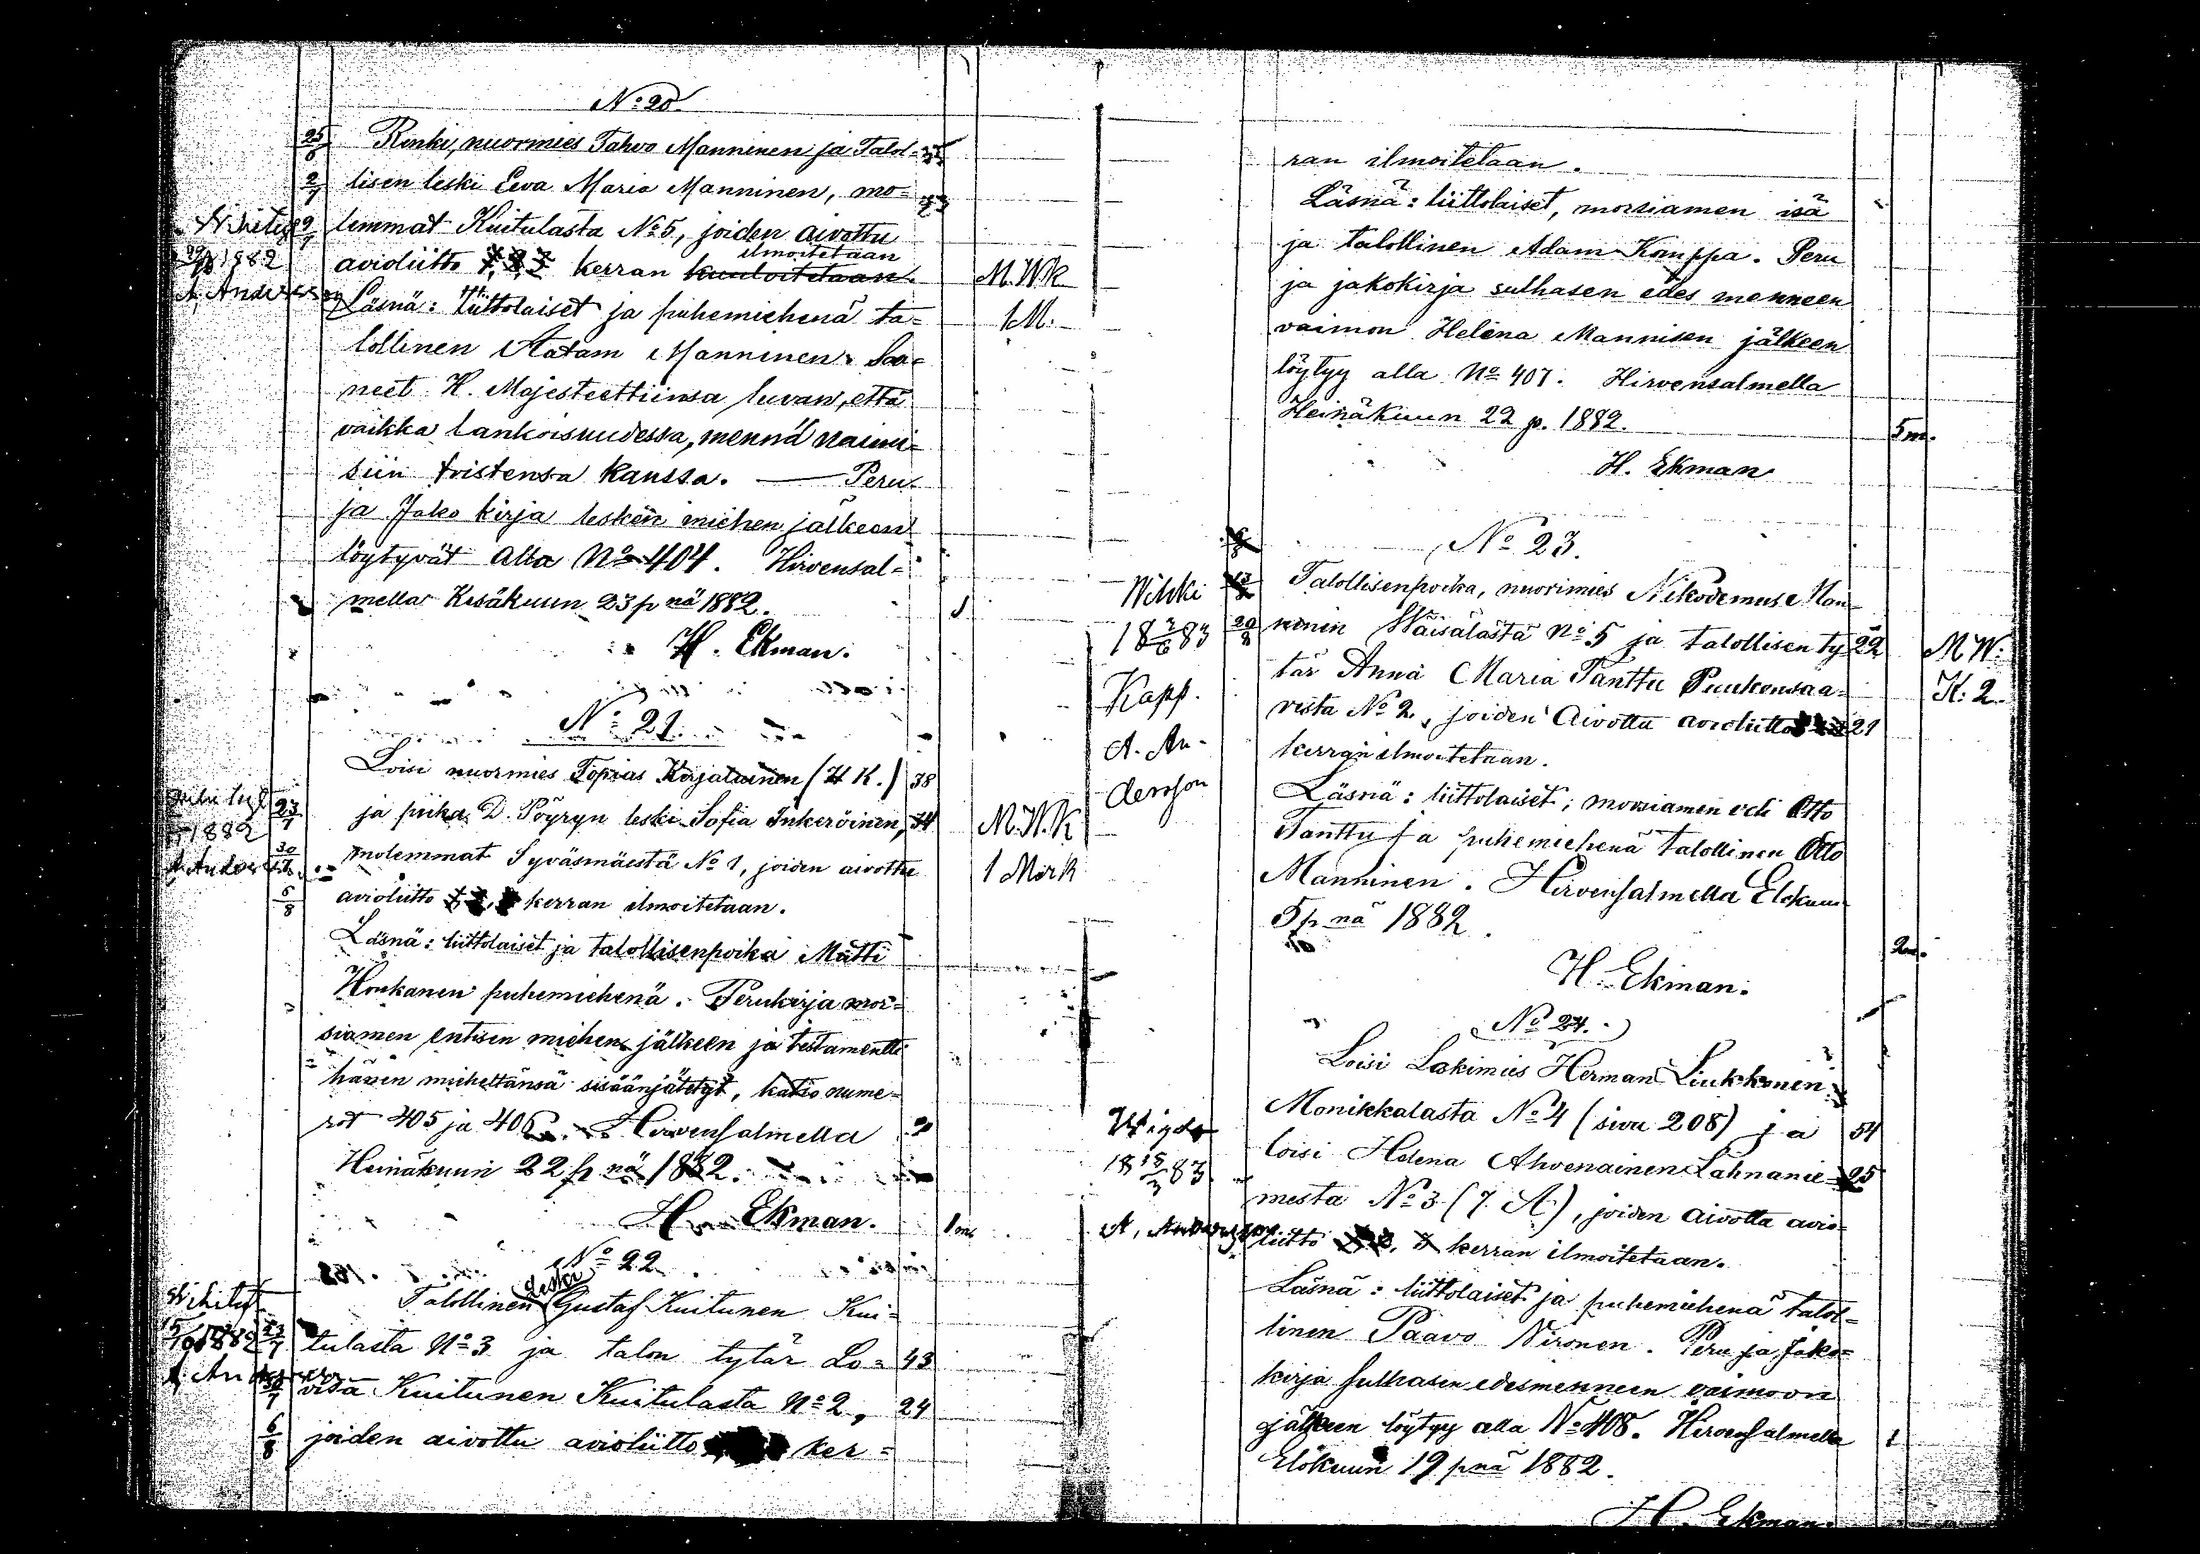 No 20.
25/6 Renki, nuormies Tahvo Manninen ja Talol-
2/7 lisen leski Eeva Maria Manninen, mo-
9/7 lemmat Kuitulasta No 5, joiden aivottu
ilmoitetaan
avioliitto 1, 2, 3 kerran kuuloitetaan.
Läsnä: liittolaiset ja puhemiehenä ta-
lollinen Aatam Manninen. Saa-
neet H. Majesteettiinsa luvan, että
vaikka lankoisuudessa, mennä naimi-
siin toistensa kanssa. — Peru
ja Jako kirja lesken miehen jälkeen
löytyvät alla No 404. Hirvensal-
mella Kesäkuun 23 p nä 1882.
H. Ekman.
1882
A. Andersson
M. W. K
1 M.
No 21.
Loisi nuormies Topias Korjalainen (H K.) 38
23/7 ja piika D. Pöyryn leski Sofia Inkeröinen, 34
30/7 molemmat Syväsmäestä No 1, joiden aivottu
6/8 avioliitto kerran ilmoitetaan.
Läsnä: liittolaiset ja talollisenpoika Matti
Honkanen puhemiehenä. Perukirja mor-
siamen entisen miehen jälkeen ja testamentti
hänen mieheltänsä sisäänjätetyt, katso nume-
rot 405 ja 406. Hirvensalmella
Heinäkuun 22 p nä 1882.
H. Ekman. 1 m.
1882
A. Anders
M. W. K
1 Mark
No 22
leski
Talollinen Gustaf Kuitunen Kui-
23/7 tulasta No 3 ja talon tytär Lo- 43
30/7 visa Kuitunen Kuitulasta No 2, 24
6/8 joiden aivottu avioliitto ker-
Wihityt
ran ilmoitetaan.
Läsnä: liittolaiset, morsiamen isä
ja talollinen Adam Komppa. Peru
ja jakokirja sulhasen edes menneen
vaimon Helena Mannisen jälkeen
löytyy alla No 407. Hirvensalmella
Heinäkuun 22 p. 1882. 5 m.
H. Ekman
No 23.
Talollisenpoika, nuorimies Nikodemus Man-
20/8 ninen Wäisälästä No 5 ja talollisen ty- 22
tär Anna Maria Tanttu Puukonsaa-
resta No 2, joiden aivottu avioliitto 21
kerran ilmoitetaan.
Läsnä: liittolaiset; morsiamen veli Otto
Tanttu ja puhemiehenä talollinen Otto
Manninen. Hirvensalmella Elokuun
5 p nä 1882. 2 m.
H. Ekman.
Wihki
18 2/6 83
Kapp.
A. An-
dersson
M W:
K. 2.
No 24.
Loisi Leskimies Herman Liukkonen
Monikkalasta No 4 (sivu 208) ja 54
loisi Helena Ahvenainen Lahnanie- 25
mestä No 3 (7. A), joiden aivottu avio-
liitto kerran ilmoitetaan.
Läsnä: liittolaiset ja puhemiehenä talol-
linen Paavo Nironen. Peru ja Jako-
kirja sulhasen edesmenneen vaimoon
jälkeen löytyy alla No 408. Hirvensalmella 1
Elokuun 19 p nä 1882.
H. Ekman.
18 15/3 83
A. Andersson